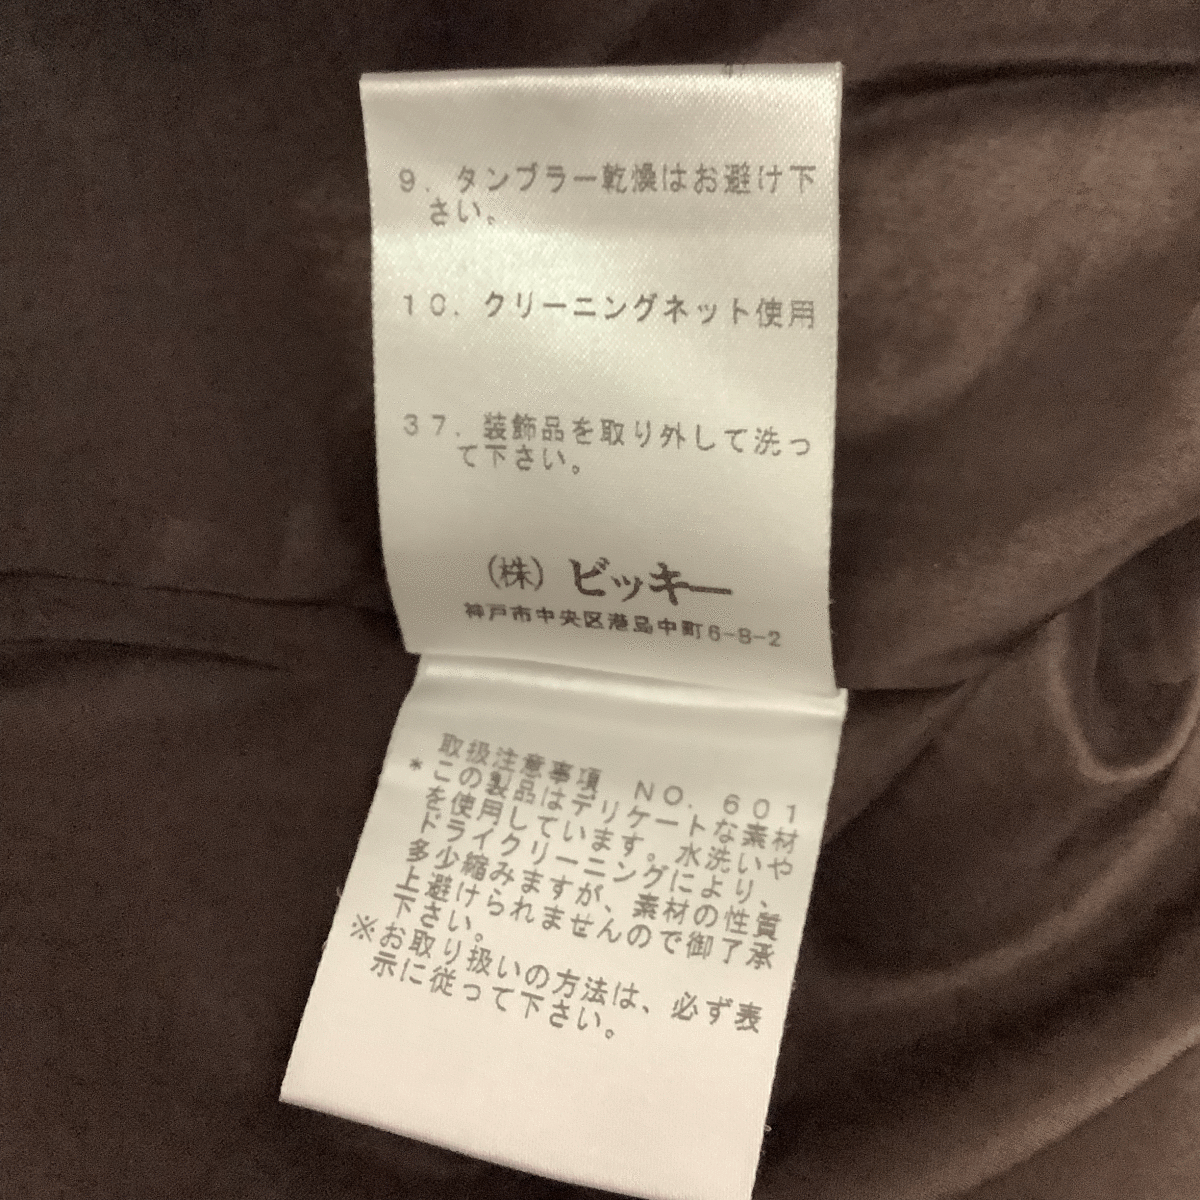 9. タンブラー乾燥はお避け下
さい。
10. クリーニングネット使用
37. 装飾品を取り外して洗っ
て下さい。
(株) ビッキー
神戸市中央区港島中町6-8-2
取扱注意事項 NO. 601
*この製品はデリケートな素材
を使用しています。水洗いや
ドライクリーニングにより、
多少縮みますが、素材の性質
上避けられませんので御了承
下さい。
※お取り扱いの方法は、必ず表
示に従って下さい。